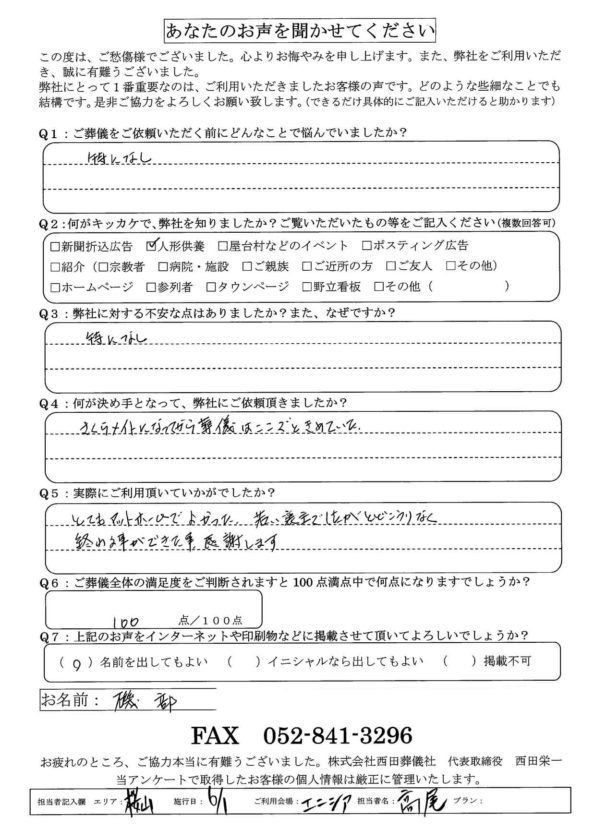 あなたのお声を聞かせてください
この度は、ご愁傷様でございました。心よりお悔やみを申し上げます。また、弊社をご利用いただ
き、誠に有難うございました。
弊社にとって1番重要なのは、ご利用いただきましたお客様の声です。どのような些細なことでも
結構です。是非ご協力をよろしくお願い致します。(できるだけ具体的にご記入いただけると助かります)
Q1：ご葬儀をご依頼いただく前にどんなことで悩んでいましたか？
特になし
Q2：何がキッカケで、弊社を知りましたか？ご覧いただいたもの等をご記入ください(複数回答可)
□新聞折込広告 ☑人形供養 □屋台村などのイベント □ポスティング広告
□紹介（□宗教者 □病院・施設 □ご親族 □ご近所の方 □ご友人 □その他）
□ホームページ □参列者 □タウンページ □野立看板 □その他（ ）
Q3：弊社に対する不安な点はありましたか？また、なぜですか？
特になし
Q4：何が決め手となって、弊社にご依頼頂きましたか？
さくらメイトになってから葬儀はここときめていた
Q5：実際にご利用頂いていかがでしたか？
とてもアットホームでよかった。若い喪主でしたがとどこうりなく
終わる事ができた事感謝します
Q6：ご葬儀全体の満足度をご判断されますと100点満点中で何点になりますでしょうか？
100 点／100点
Q7：上記のお声をインターネットや印刷物などに掲載させて頂いてよろしいでしょうか？
（○）名前を出してもよい （ ）イニシャルなら出してもよい （ ）掲載不可
お名前： 磯部
FAX 052-841-3296
お疲れのところ、ご協力本当に有難うございました。株式会社西田葬儀社 代表取締役 西田栄一
当アンケートで取得したお客様の個人情報は厳正に管理いたします。
担当者記入欄 エリア：桜山 施行日：6/1 ご利用会場：エニシア 担当者名：高尾 プラン：